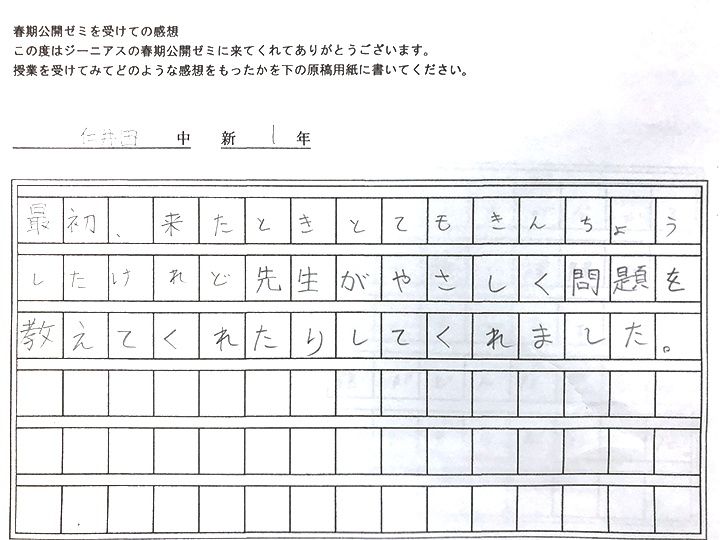 春期公開ゼミを受けての感想
この度はジーニアスの春期公開ゼミに来てくれてありがとうございます。
授業を受けてみてどのような感想をもったかを下の原稿用紙に書いてください。
仁井田 中 新 1 年
最初、来たときとてもきんちょう
したけれど先生がやさしく問題を
教えてくれたりしてくれました。